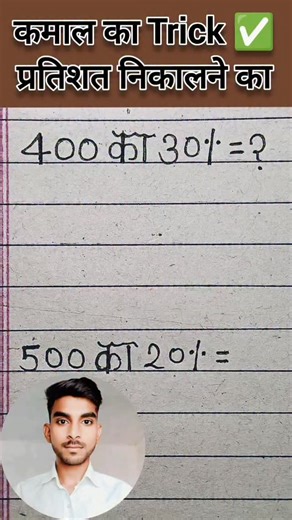 कमाल का Trick ✅
प्रतिशत निकालने का
400 का 30% = ?
500 का 20% =